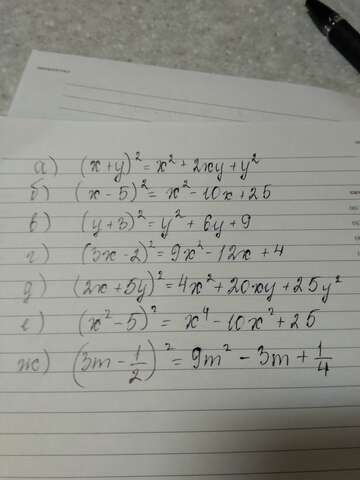 а) (x+y)² = x² + 2xy + y²
б) (x - 5)² = x² - 10x + 25
в) (y + 3)² = y² + 6y + 9
г) (3x - 2)² = 9x² - 12x + 4
д) (2x + 5y)² = 4x² + 20xy + 25y²
е) (x² - 5)² = x⁴ - 10x² + 25
ж) (3m - 1/2)² = 9m² - 3m + 1/4